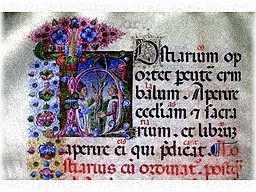 HOstiarium op
ortet pcute cim
balum. Aperire
eccliam & sacra
rium. et librum
aperire ei qui p̄dicat. Ho
stiarius cū ordinat̄. postq̄